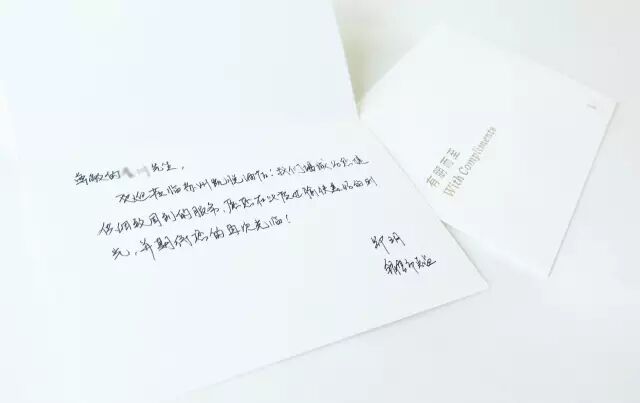 尊敬的 先生，
欢迎莅临苏州凯悦酒店！我们 为您提
供细致周到的服务，愿您在此度过 愉快美好的时
光，并期待您的再次光临！
有朋而至
With Compliments